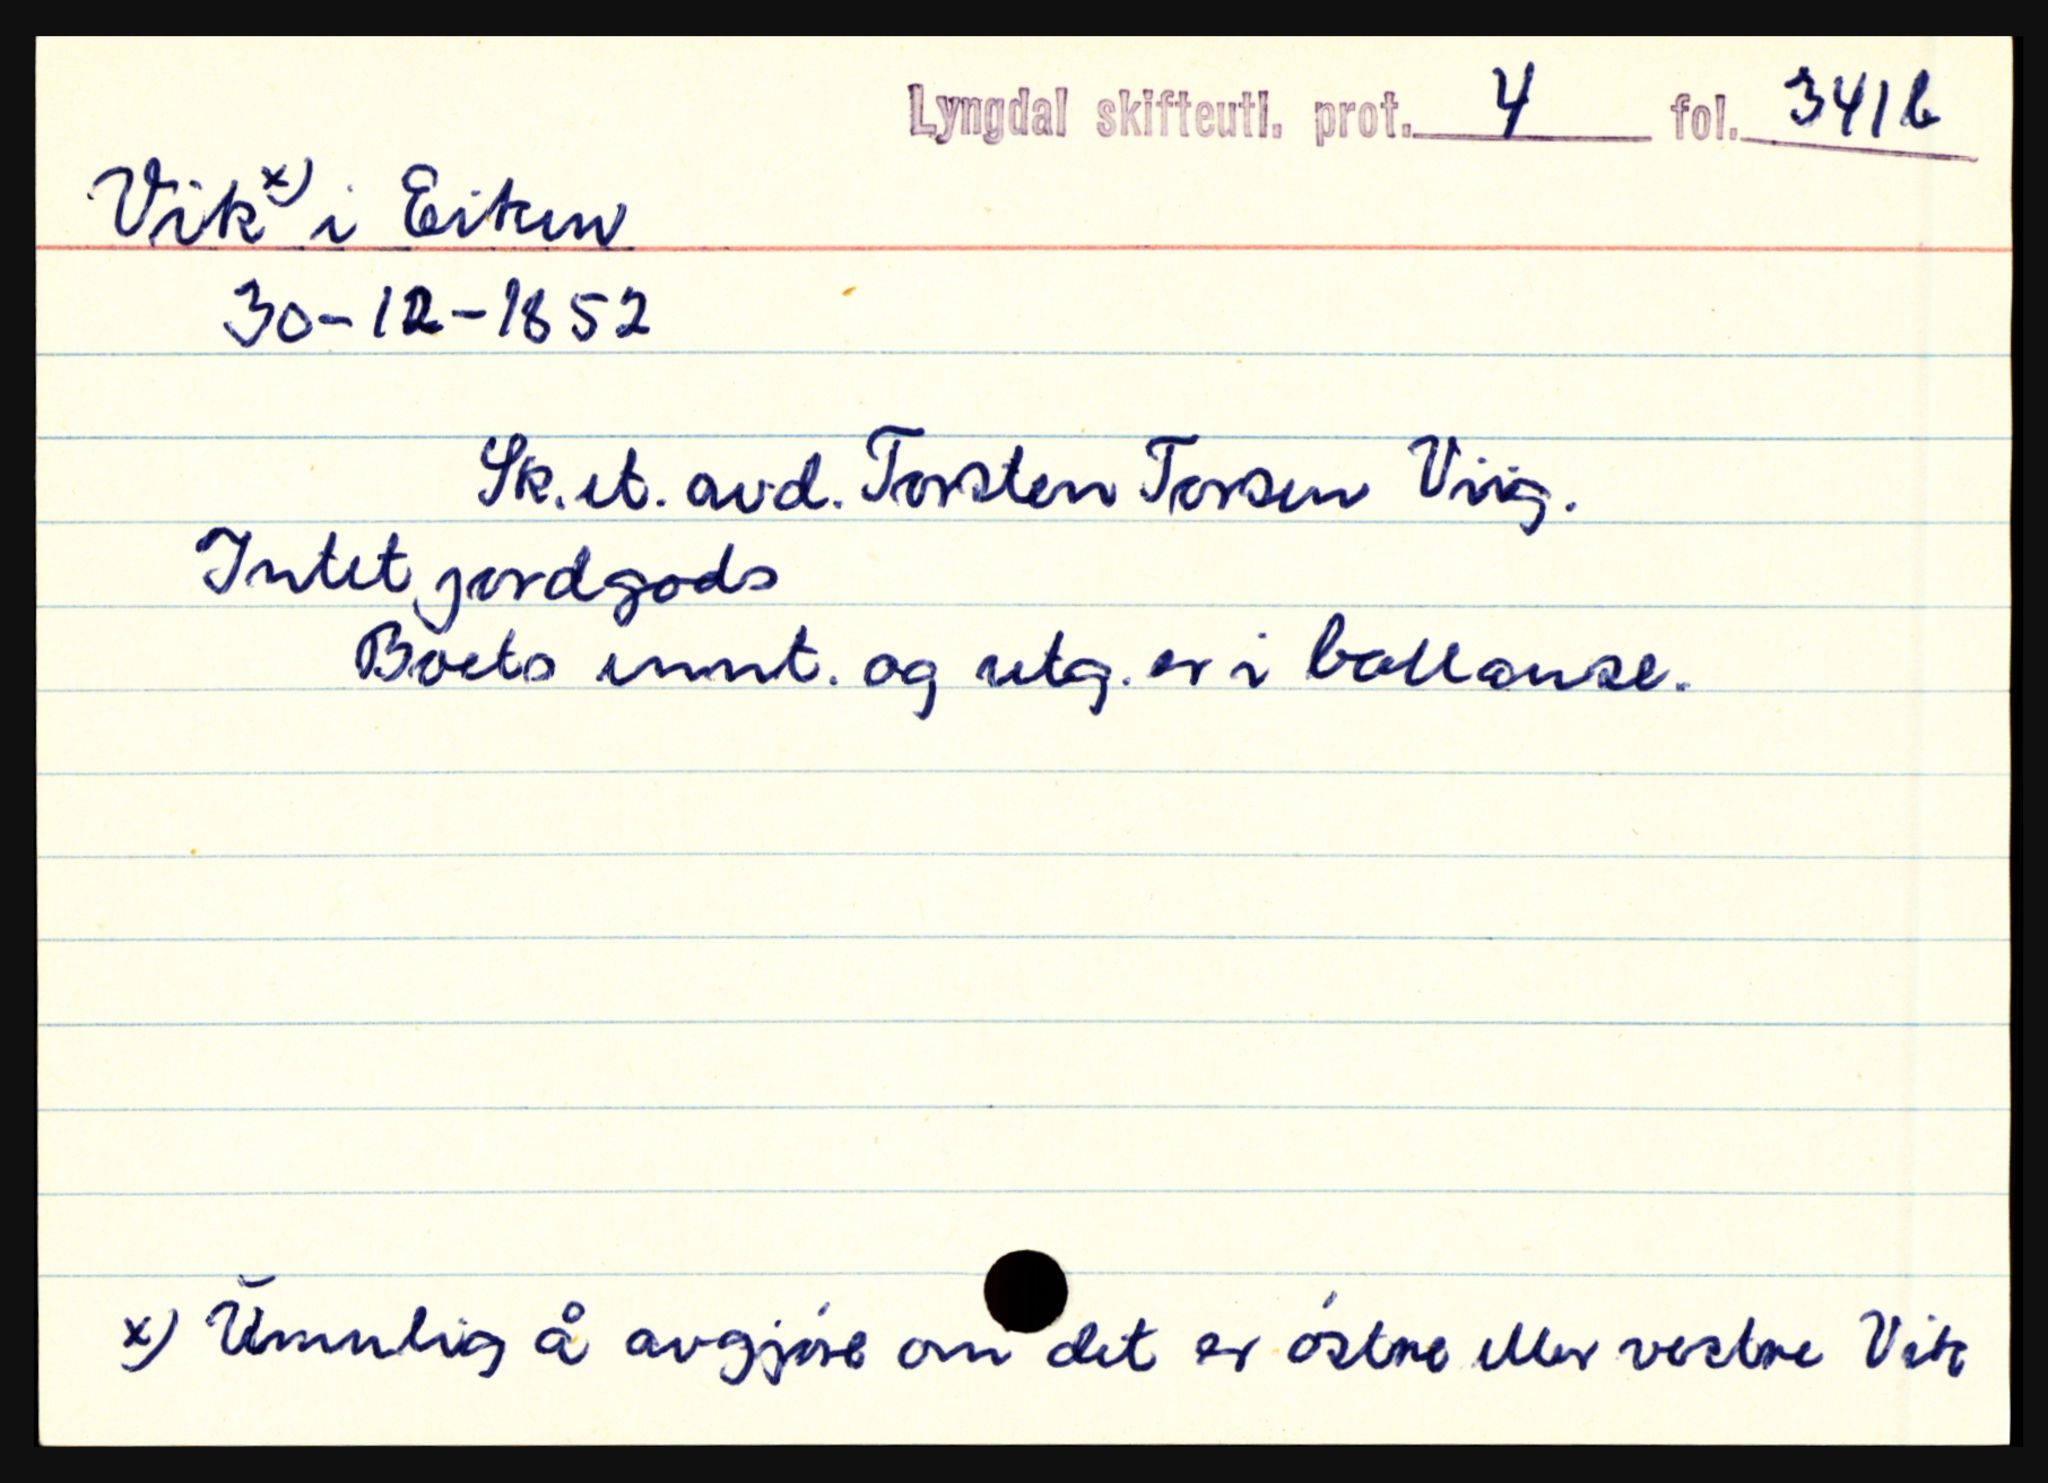 Lyngdal skifteutl. prot. 4 fol. 341b
Vik x) i Eiken
30-12-1852
Sk. et. avd. Torsten Torsen Viig.
Intet jordgods
Boets innt. og utg. er i ballanse.
x) Umulig å avgjøre om det er østre eller vestre Vik